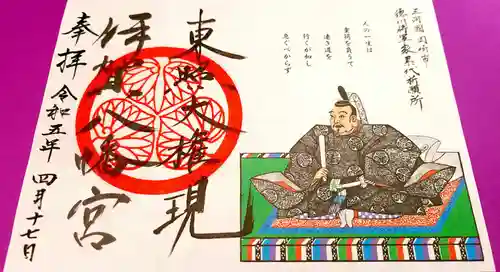 三河国岡崎市
徳川将軍家累代祈願所
人の一生は
重荷を負うて
遠き道を
行くが如し
急ぐべからず
東照大権現
伊賀八幡宮
奉拝
令和五年
四月十七日